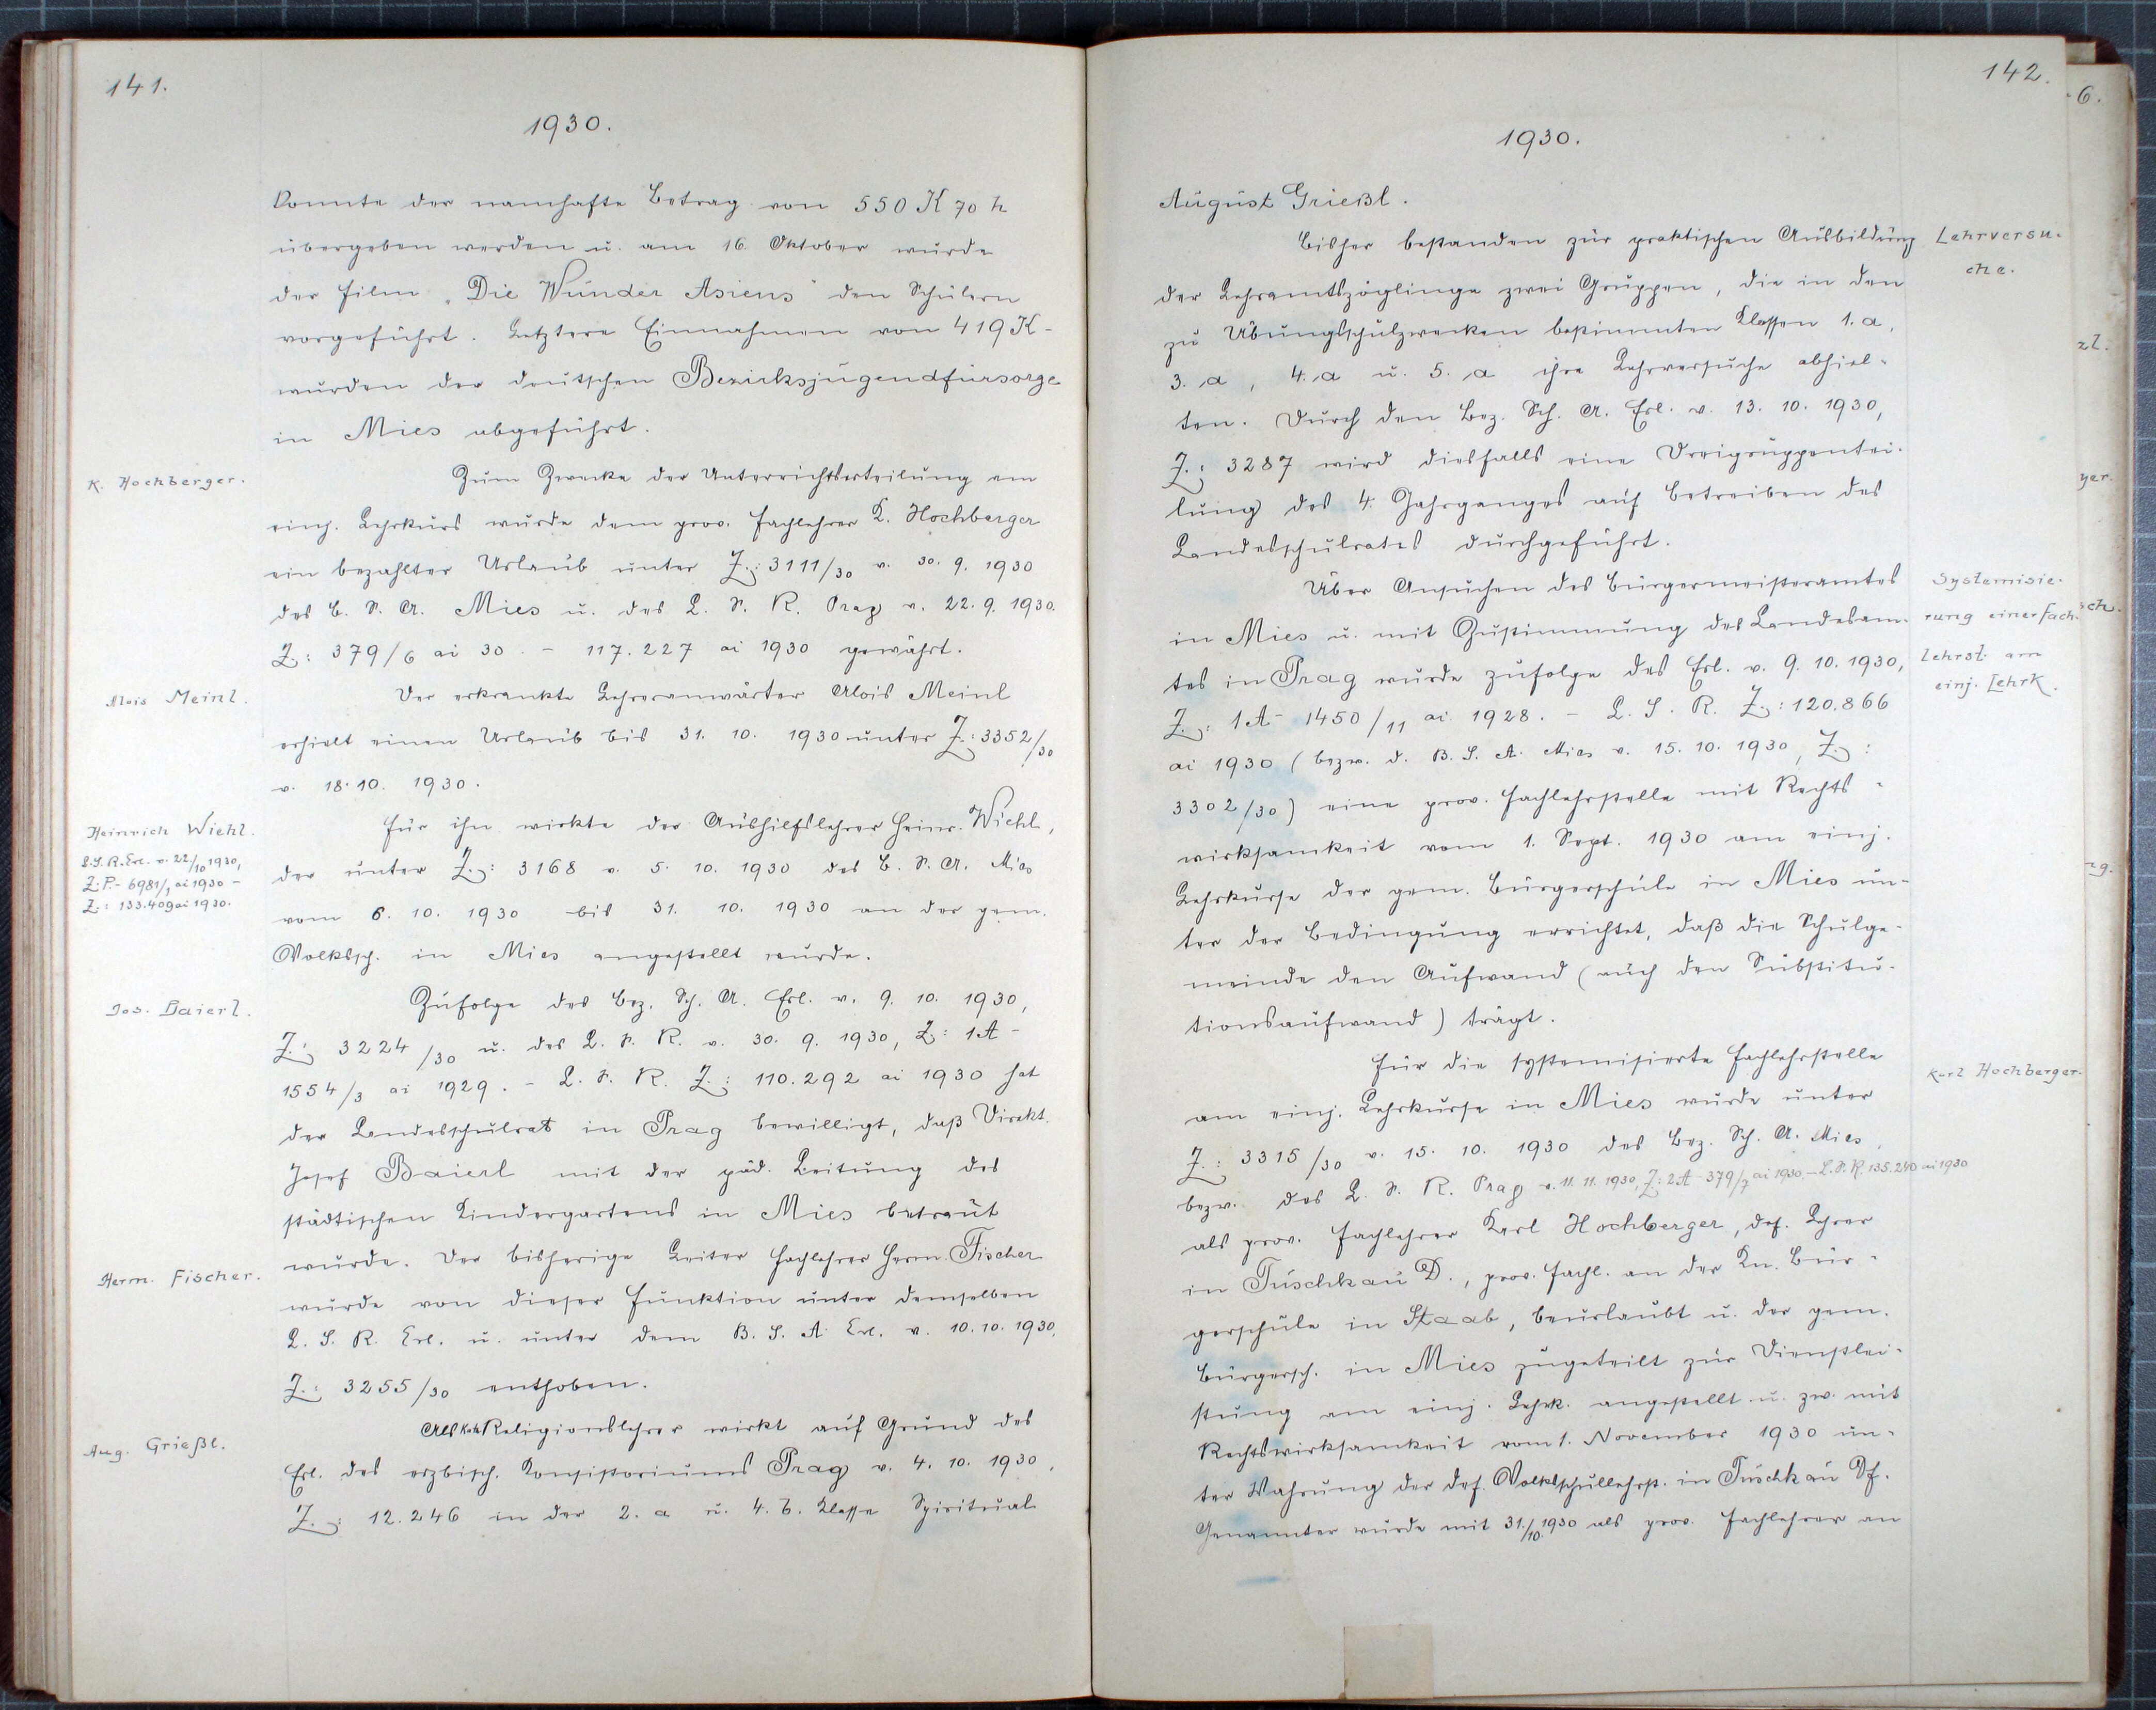 141.
1930.
konnte der namhafte Betrag von 550 K 70 h
übergeben werden u. am 16. Oktober wurde
der Film „Die Wunder Asiens" den Schülern
vorgeführt. Letztere Einnahmen von 419 K -
wurden der deutschen Bezirksjugendfürsorge
in Mies abgeführt.
K. Hochberger.
Zum Zwecke der Unterrichtserteilung am
einj. Lehrkurs wurde dem prov. Fachlehrer K. Hochberger
ein bezahlter Urlaub unter Z.: 3111/30 v. 30. 9. 1930
des B. S. A. Mies u. des L. S. R. Prag v. 22. 9. 1930.
Z.: 379/6 ai 30. - 117.227 ai 1930 gewährt.
Alois Meinl.
Der erkrankte Lehreranwärter Alois Meinl
erhielt einen Urlaub bis 31. 10. 1930 unter Z.: 3352/30
v. 18. 10. 1930.
Heinrich Wiehl.
L. S. R. Erl. v. 22/10 1930,
Z: P.- 6981/1 ai 1930 -
Z.: 133.409 ai 1930.
Für ihn wirkte der Aushilfslehrer Heinr. Wiehl,
der unter Z.: 3168 v. 5. 10. 1930 des B. S. A. Mies
vom 6. 10. 1930 bis 31. 10. 1930 an der gem.
Volkssch. in Mies angestellt wurde.
Jos. Baierl.
Zufolge des Bez. Sch. A. Erl. v. 9. 10. 1930,
Z.: 3224/30 u. des L. S. R. v. 30. 9. 1930, Z.: 1A -
1554/3 ai 1929. - L. S. R. Z.: 110.292 ai 1930 hat
der Landesschulrat in Prag bewilligt, daß Direkt.
Josef Baierl mit der päd. Leitung des
städtischen Kindergartens in Mies betraut
wurde. Der bisherige Leiter Fachlehrer Herm. Fischer
Herm. Fischer.
wurde von dieser Funktion unter demselben
L. S. R. Erl. u. unter dem B. S. A. Erl. v. 10. 10. 1930,
Z.: 3255/30 enthoben.
Als kath. Religionslehrer wirkt auf Grund des
Aug. Grießl.
Erl. des erzbisch. Konsistoriums Prag v. 4. 10. 1930,
Z.: 12.246 in der 2. a u. 4. b. Klasse Spiritual
142.
1930.
August Grießl.
Lehrversu-
che.
Bisher bestanden zur praktischen Ausbildung
der Lehramtszöglinge zwei Gruppen, die in den
zu Übungsschulzwecken bestimmten Klassen 1. a,
3. a, 4. a u. 5. a ihre Lehrversuche abhiel-
ten. Durch den Bez. Sch. A. Erl. v. 13. 10. 1930,
Z.: 3287 wird diesfalls eine Dreigruppentei-
lung des 4. Jahrganges auf Betreiben des
Landesschulrates durchgeführt.
Systemisie-
rung einer Fach-
lehrst. am
einj. Lehrk.
Über Ansuchen des Bürgermeisteramtes
in Mies u. mit Zustimmung des Landesam-
tes in Prag wurde zufolge des Erl. v. 9. 10. 1930,
Z.: 1A - 1450/11 ai 1928. - L. S. R. Z.: 120.866
ai 1930 (bezw. d. B. S. A. Mies v. 15. 10. 1930, Z.:
3302/30) eine prov. Fachlehrstelle mit Rechts-
wirksamkeit vom 1. Sept. 1930 am einj.
Lehrkurse der gem. Bürgerschule in Mies un-
ter der Bedingung errichtet, daß die Schulge-
meinde den Aufwand (auch den Substitu-
tionsaufwand) trägt.
Karl Hochberger.
Für die systemisierte Fachlehrstelle
am einj. Lehrkurse in Mies wurde unter
Z.: 3315/30 v. 15. 10. 1930 des Bez. Sch. A. Mies,
bezw. des L. S. R. Prag v. 11. 11. 1930, Z.: 2A - 379/7 ai 1930. - L. S. R. 135.240 ai 1930
als prov. Fachlehrer Karl Hochberger, def. Lehrer
in Tuschkau D., prov. Fachl. an der Kn. Bür-
gerschule in Staab, beurlaubt u. der gem.
Bürgersch. in Mies zugeteilt zur Dienstlei-
stung am einj. Lehrk. angestellt u. zw. mit
Rechtswirksamkeit vom 1. November 1930 un-
ter Wahrung der def. Volksschullehrst. in Tuschkau Df.
Genannter wurde mit 31./10. 1930 als prov. Fachlehrer an